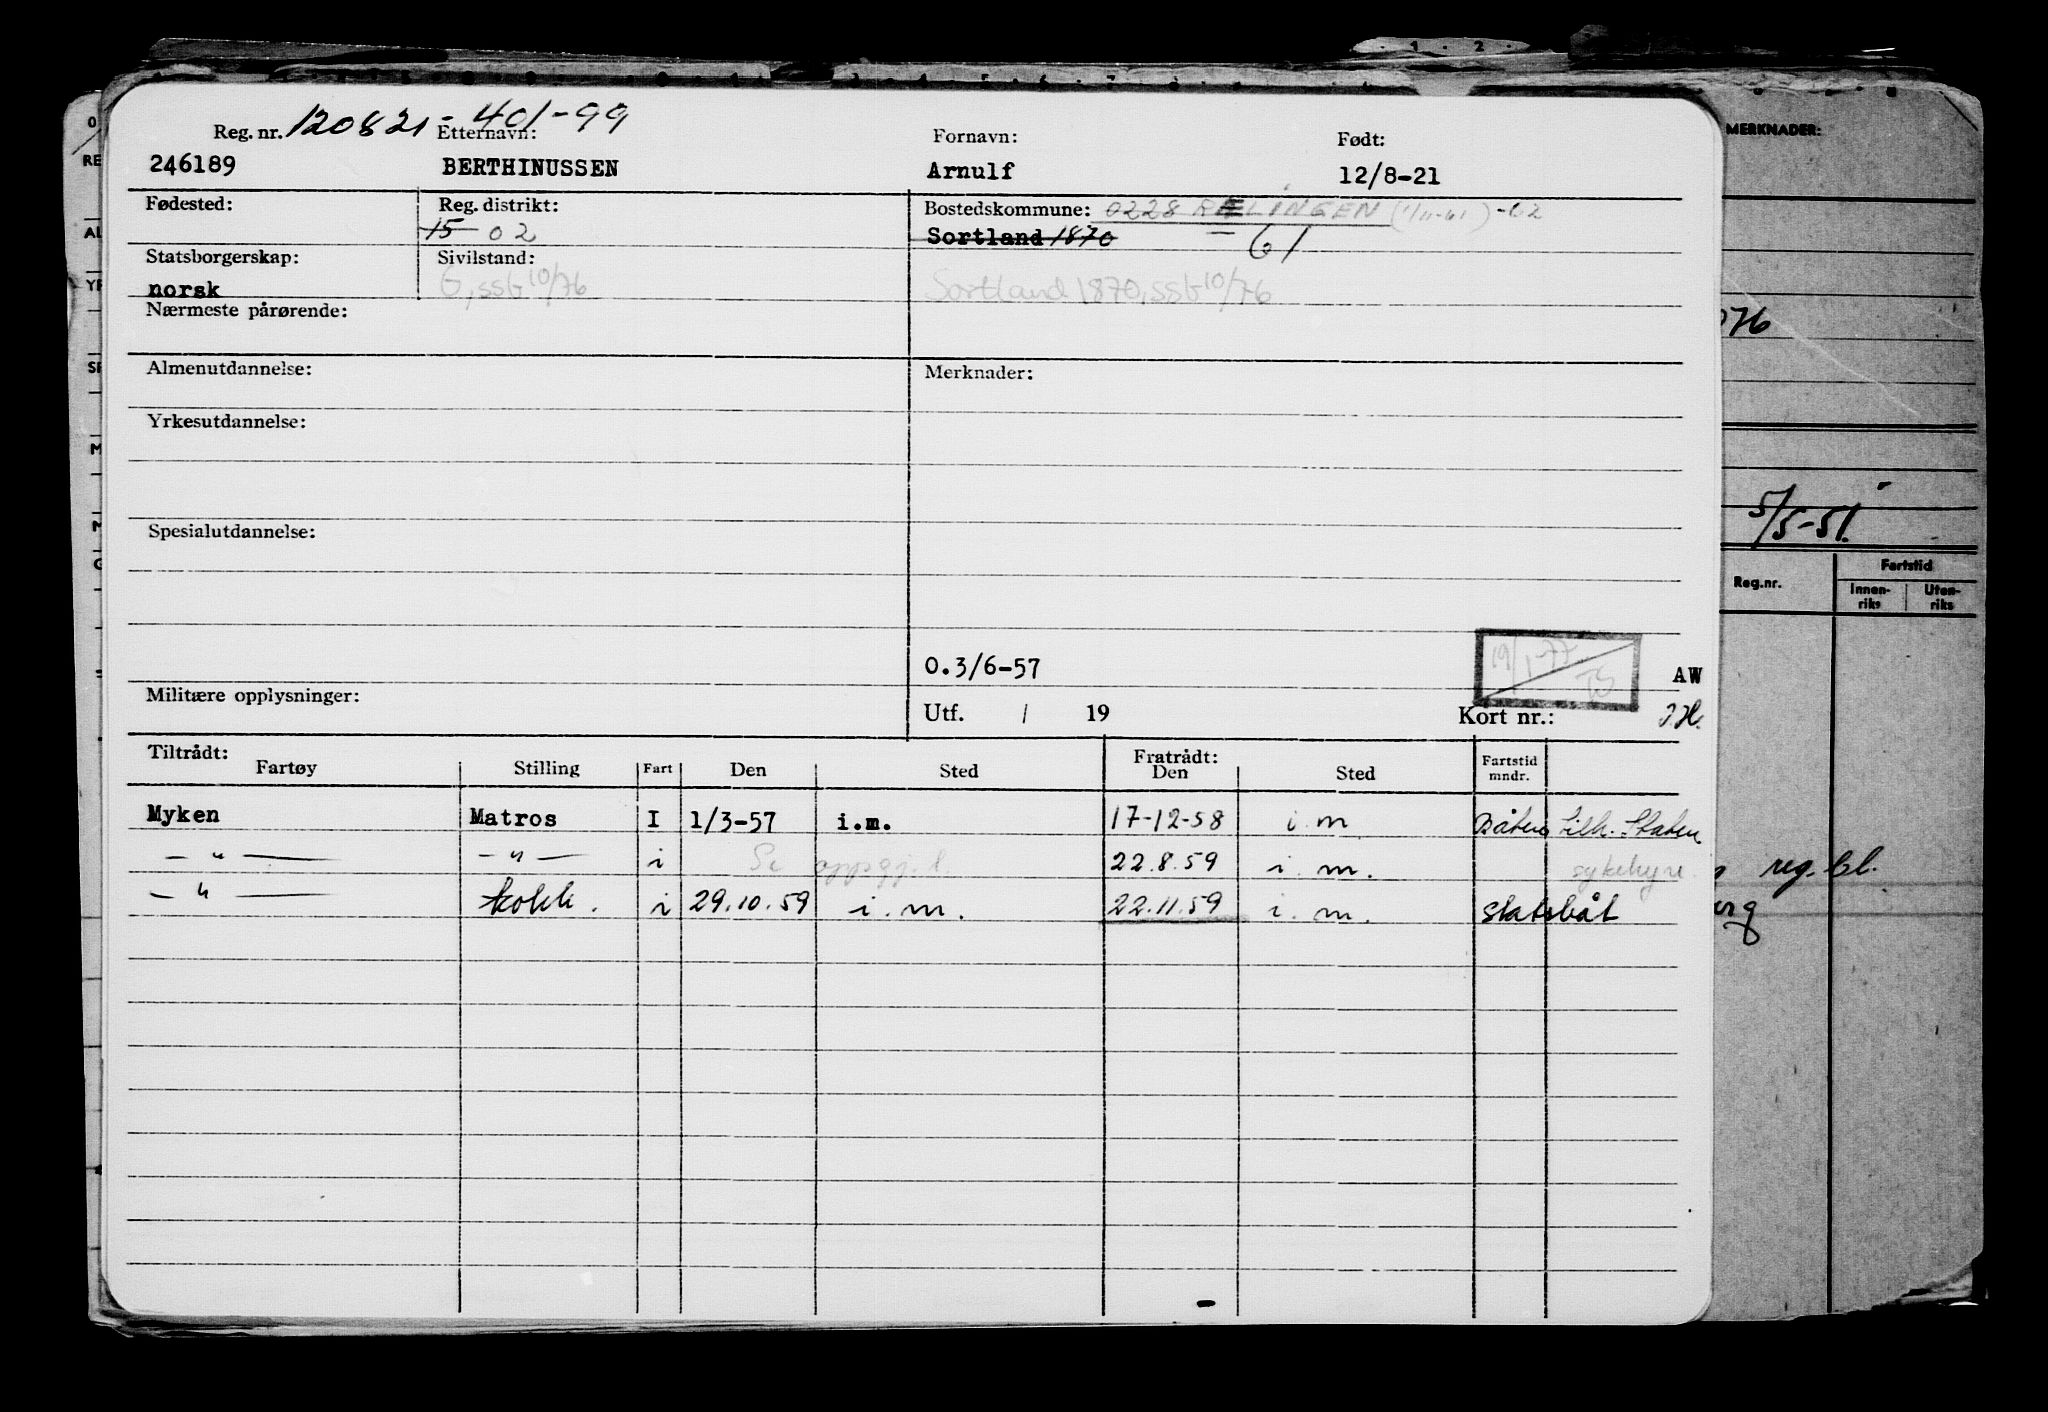 Reg. nr. 120821-401-99 Etternavn: Fornavn: Født:
246189 BERTHINUSSEN Arnulf 12/8-21
Fødested: Reg. distrikt: Bostedskommune: 0228 RÆLINGEN (1/11-61)-62
15 02 Sortland 1870 61
Statsborgerskap: Sivilstand:
norsk G, ssb 10/76 Sortland 1870, ssb 10/76
Nærmeste pårørende:
Almenutdannelse: Merknader:
Yrkesutdannelse:
Spesialutdannelse:
0.3/6-57 19/1-77 TS AW
Militære opplysninger:
Utf. / 19 Kort nr.:
Tiltrådt: Fratrådt:
Fartøy Stilling Fart Den Sted Den Sted Fartstid mndr.
Myken Matros I 1/3-57 i.m. 17-12-58 i.m Båten tilh. Staten
— " — — " — i Se oppgj. 22.8.59 i.m. sykehyre.
— " — kokk. i 29.10.59 i.m. 22.11.59 i.m. statsbåt
MERKNADER:
076
5/5-51.
Reg.nr. Fartstid
Innen-riks Uten-riks
reg. bl.